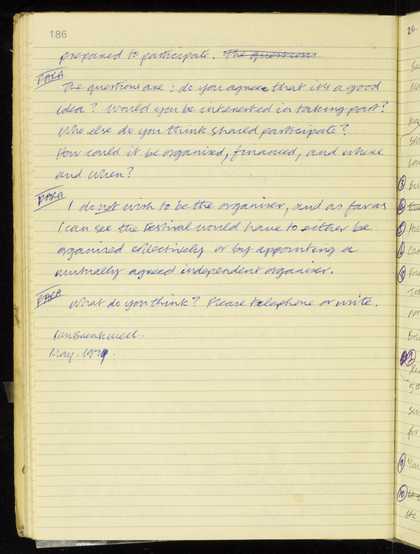 186
prepared to participate. The questions
PARA
The questions are : do you agree that it's a good
idea? Would you be interested in taking part?
Who else do you think should participate?
How could it be organised, financed, and where
and when?
PARA
I do not wish to be the organiser, and as far as
I can see the festival would have to either be
organised collectively or by appointing a
mutually agreed independent organiser.
PARA
What do you think? Please telephone or write.
Ian Breakwell.
May. 1979.